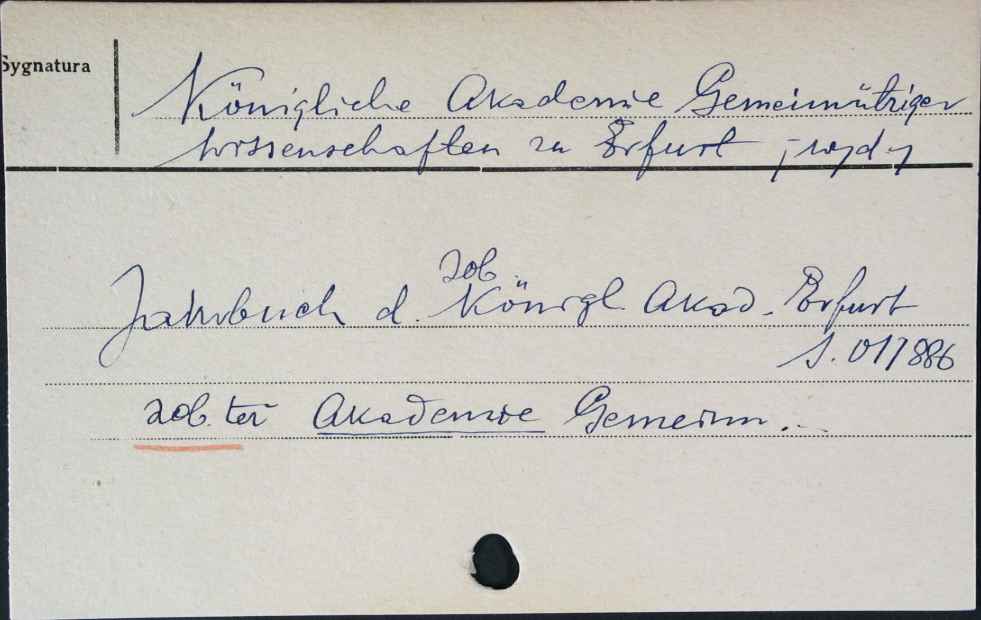 Sygnatura
Königliche Akademie Gemeinnütziger
Wissenschaften zu Erfurt [wyd.]
zob.
Jahrbuch d. Königl. Akad. Erfurt
S. 017886
zob. też Akademie Gemeinn...